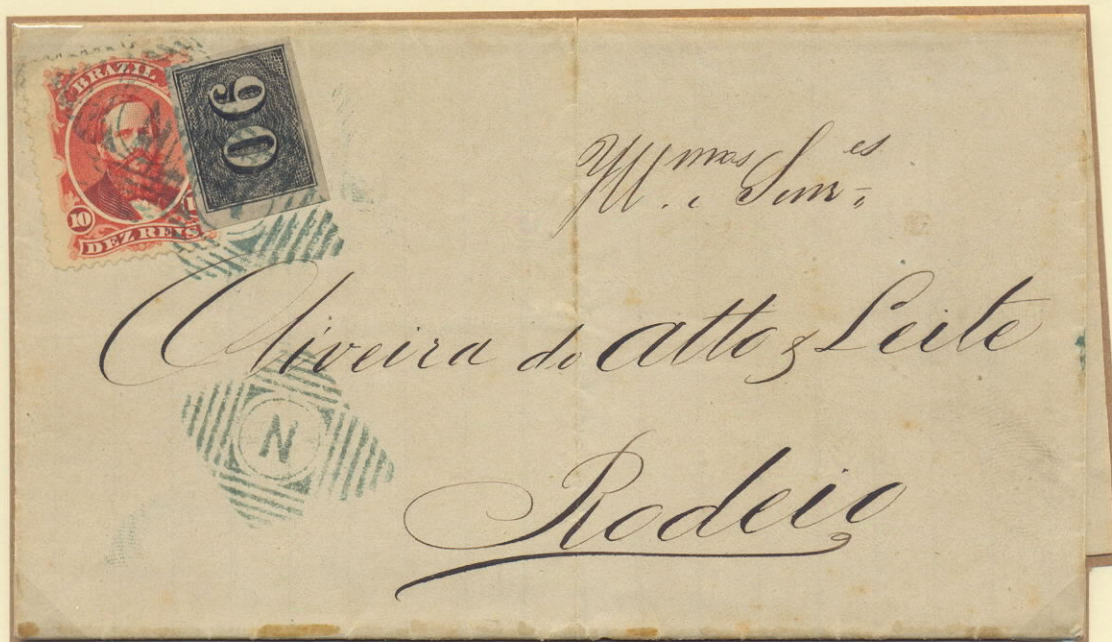 BRAZIL
10
DEZ REIS
90
Ill.mos Snr.es
Oliveira do Atto & Leite
N
Rodeio